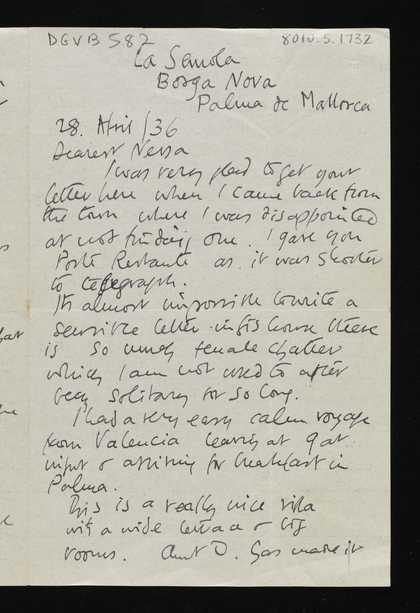 DGVB 587
8010.5.1732
La Semola
Borga Nova
Palma de Mallorca
28. April /36
Dearest Nessa
I was very glad to get your
letter here when I came back from
the town where I was disappointed
at not finding one. I gave you
Poste Restante as it was shorter
to telegraph.
Its almost impossible to write a
sensible letter in this house there
is so much female chatter
which I am not used to after
being solitary for so long.
I had a very easy calm voyage
from Valencia leaving at 9 at
night & arriving for breakfast in
Palma.
This is a really nice villa
with a wide terrace & big
rooms. Aunt D. has made it